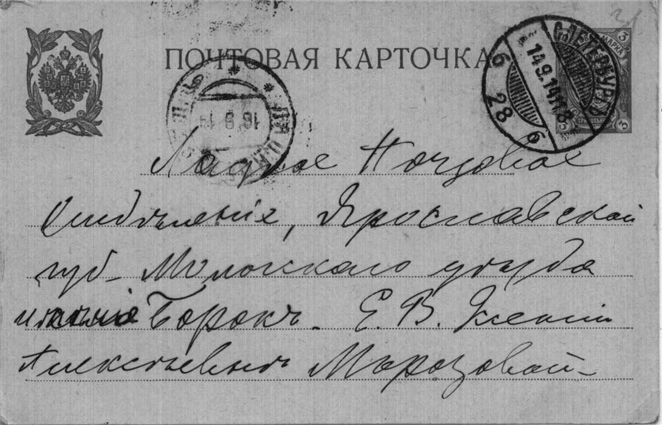 ПОЧТОВАЯ КАРТОЧКА
С.ПЕТЕРБУРГЪ
14.9.14
6
28
3
3
3
16 9 14
Почтовое
Отдѣленіе, Ярославской
губ. Мологскаго уѣзда
имѣніе Борокъ. Е. В.
Алексѣевнѣ Морозовой